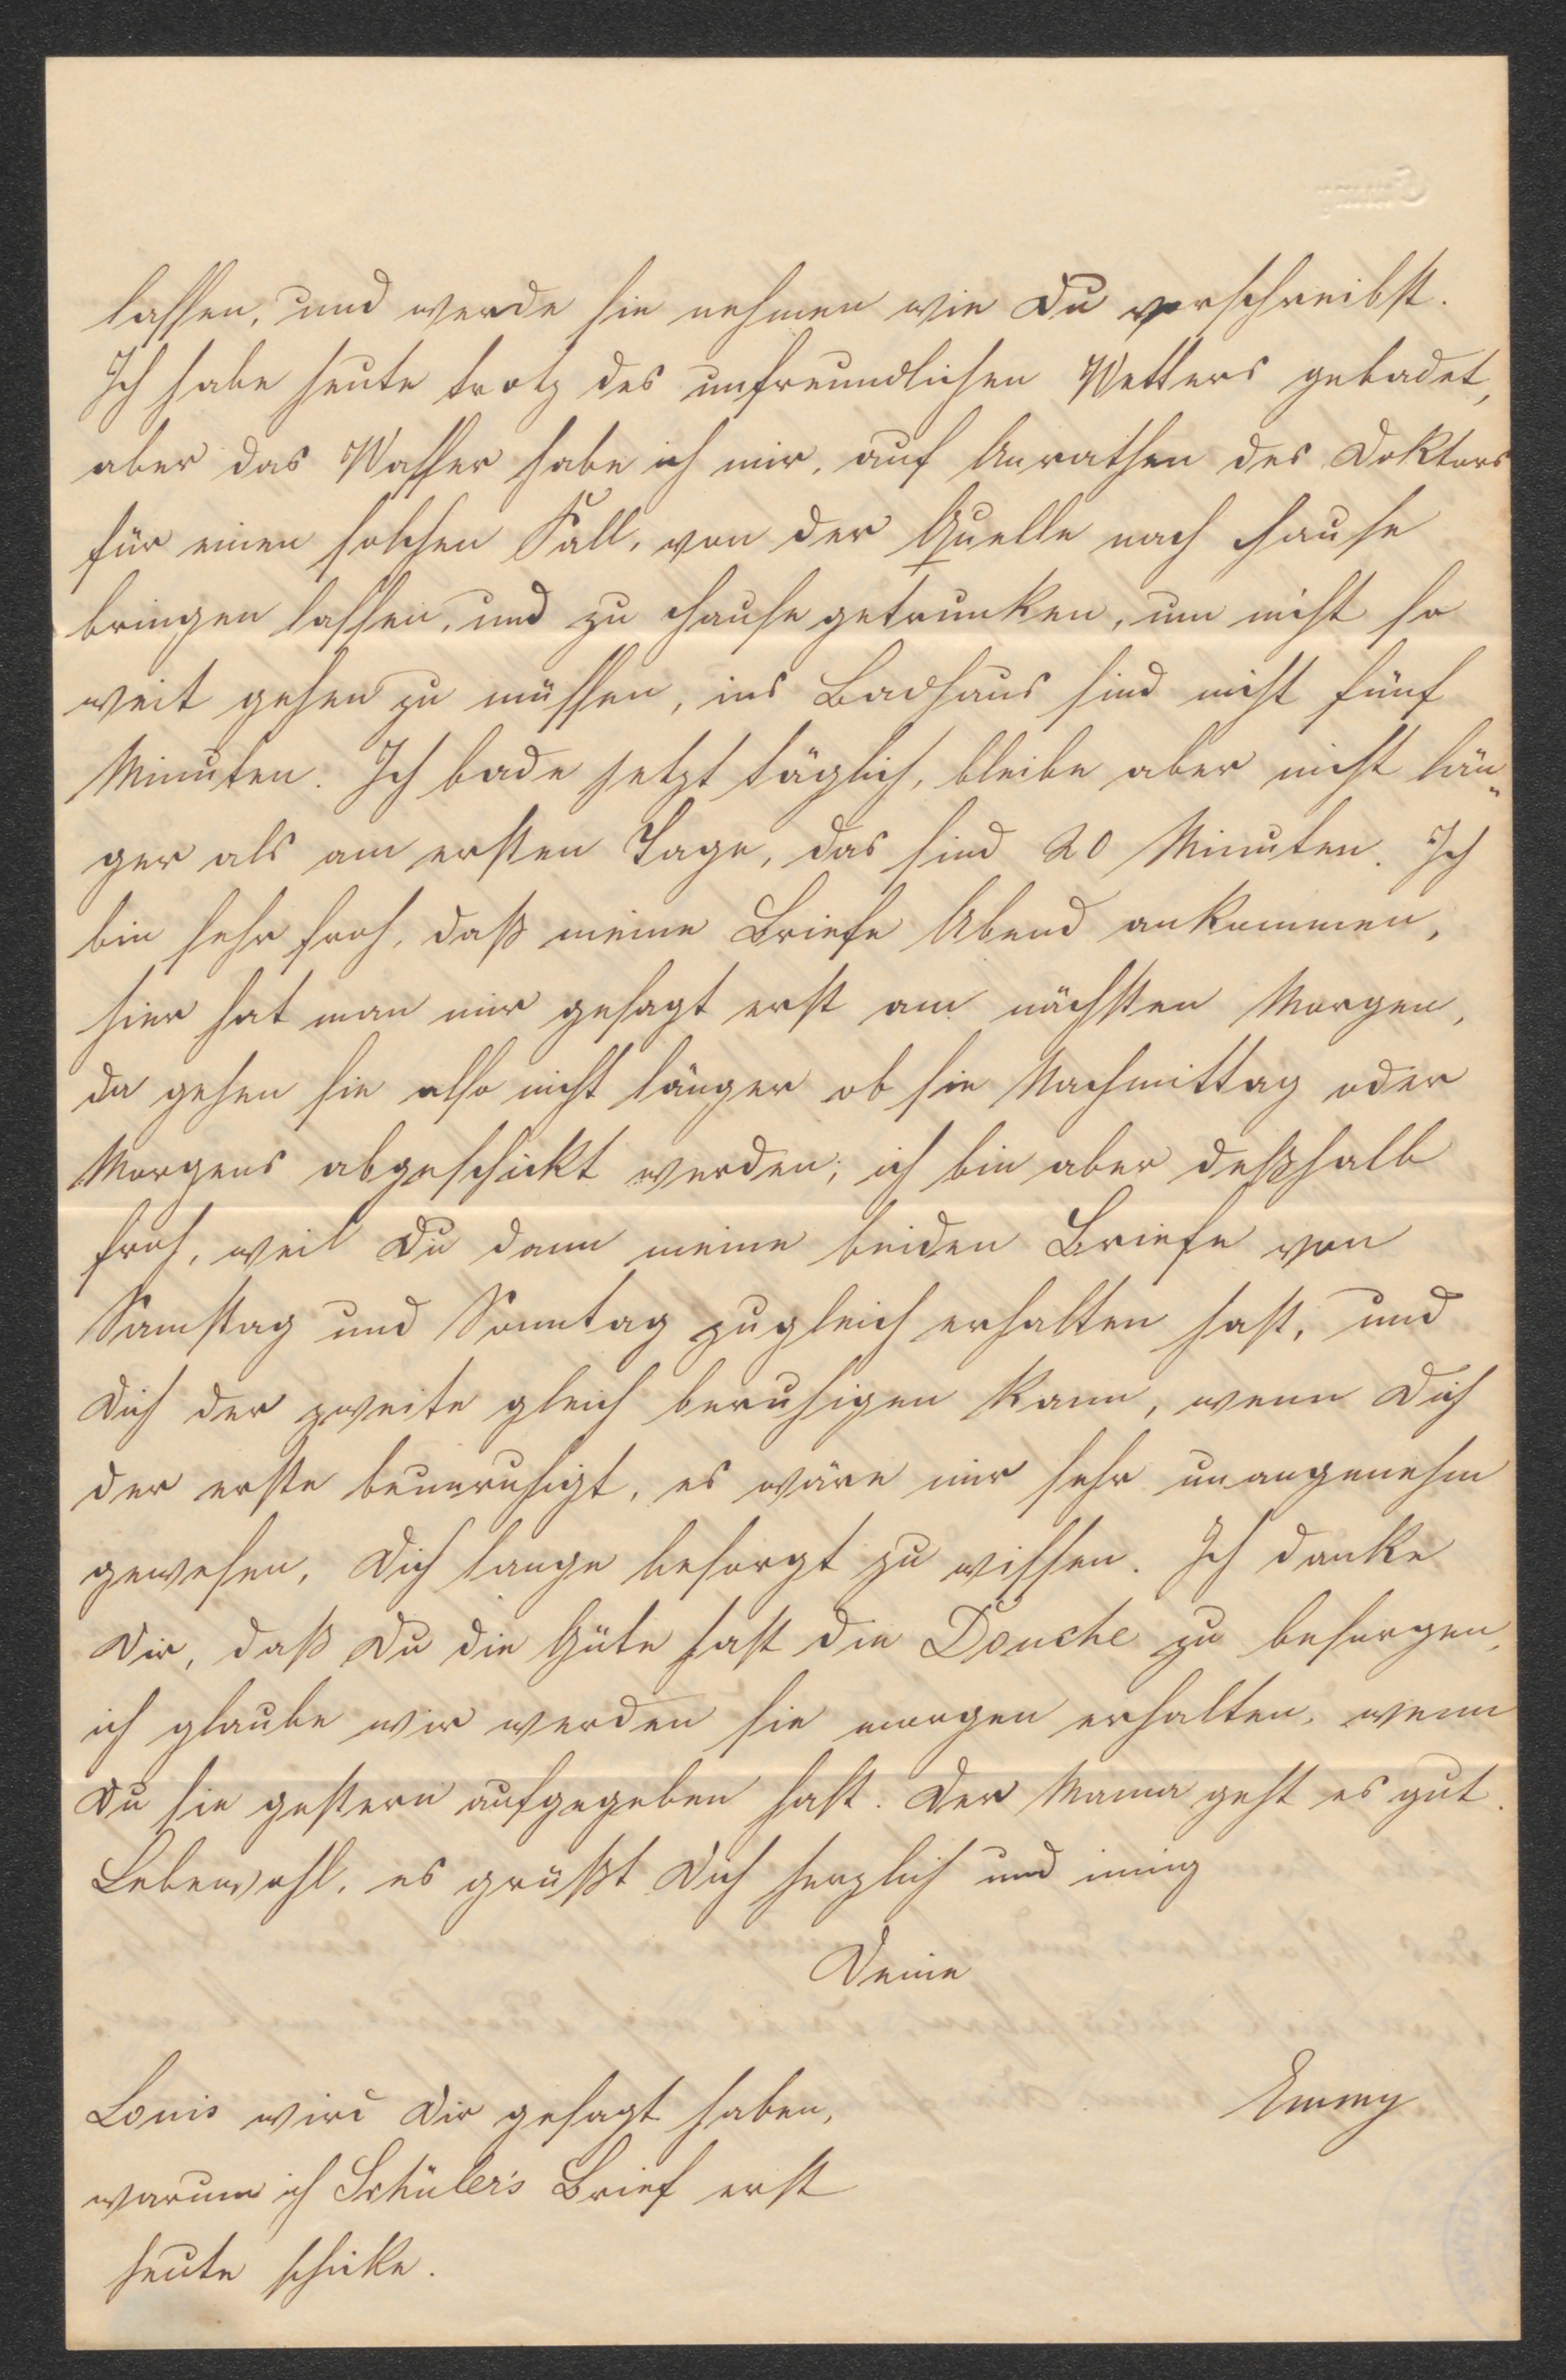 lassen, und werde sie nehmen wie Du vorschreibst.
Ich habe heute trotz des unfreundlichen Wetters gebadet,
aber das Wasser habe ich mir, auf Anrathen des Doktors
für einen solchen Fall, von der Quelle nach Hause
bringen lassen, und zu Hause getrunken, um nicht so
weit gehen zu müssen, ins Badhaus sind nicht fünf
Minuten. Ich bade jetzt täglich, bleibe aber nicht län„
ger als am ersten Tage, das sind 20 Minuten. Ich
bin sehr froh, daß meine Briefe Abend ankommen,
hier hat man mir gesagt erst am nächsten Morgen,
da gehen sie also nicht länger ob sie Nachmittag oder
Morgens abgeschickt werden; ich bin aber deßhalb
froh, weil Du dann meine beiden Briefe von
Samstag und Sonntag zugleich erhalten hast, und
Dich der zweite gleich beruhigen kann, wenn Dich
der erste beunruhigt, es wäre mir sehr unangenehm
gewesen, Dich lange besorgt zu wissen. Ich danke
Dir, daß Du die Güte hast die Douche zu besorgen,
ich glaube wir werden sie morgen erhalten, wenn
Du sie gestern aufgegeben hast. Der Mama geht es gut.
Lebewohl, es grüßt Dich herzlich und innig
Deine
Emmy
Louis wird Dir gesagt haben,
warum ich Schüler's Brief erst
heute schicke.